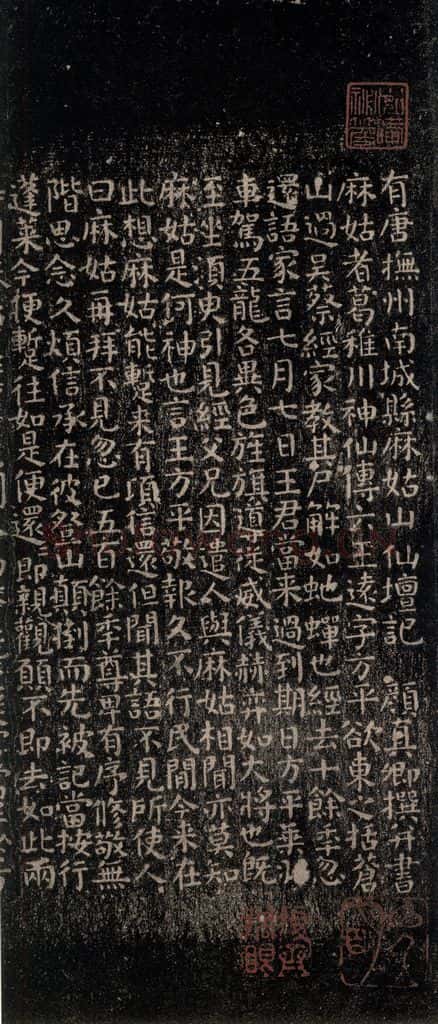 有唐撫州南城縣麻姑山仙壇記 顏真卿撰并書
麻姑者葛稚川神仙傳云王遠字方平欲東之括蒼
山過吳蔡經家教其尸解如虵蟬也經去十餘秊忽
還語家言七月七日王君當来過到期日方平乘羽
車駕五龍各異色旌旗導從威儀赫弈如大將也既
至坐須臾引見經父兄因遣人與麻姑相聞亦莫知
麻姑是何神也言王方平敬報久不行民間今来在
此想麻姑能蹔来有頃信還但聞其語不見所使人
曰麻姑再拜不見忽已五百餘秊尊卑有序修敬無
階思念久煩信承在彼登山顛倒而先被記當按行
蓬莱今便蹔往如是便還即親觀願不即去如此兩